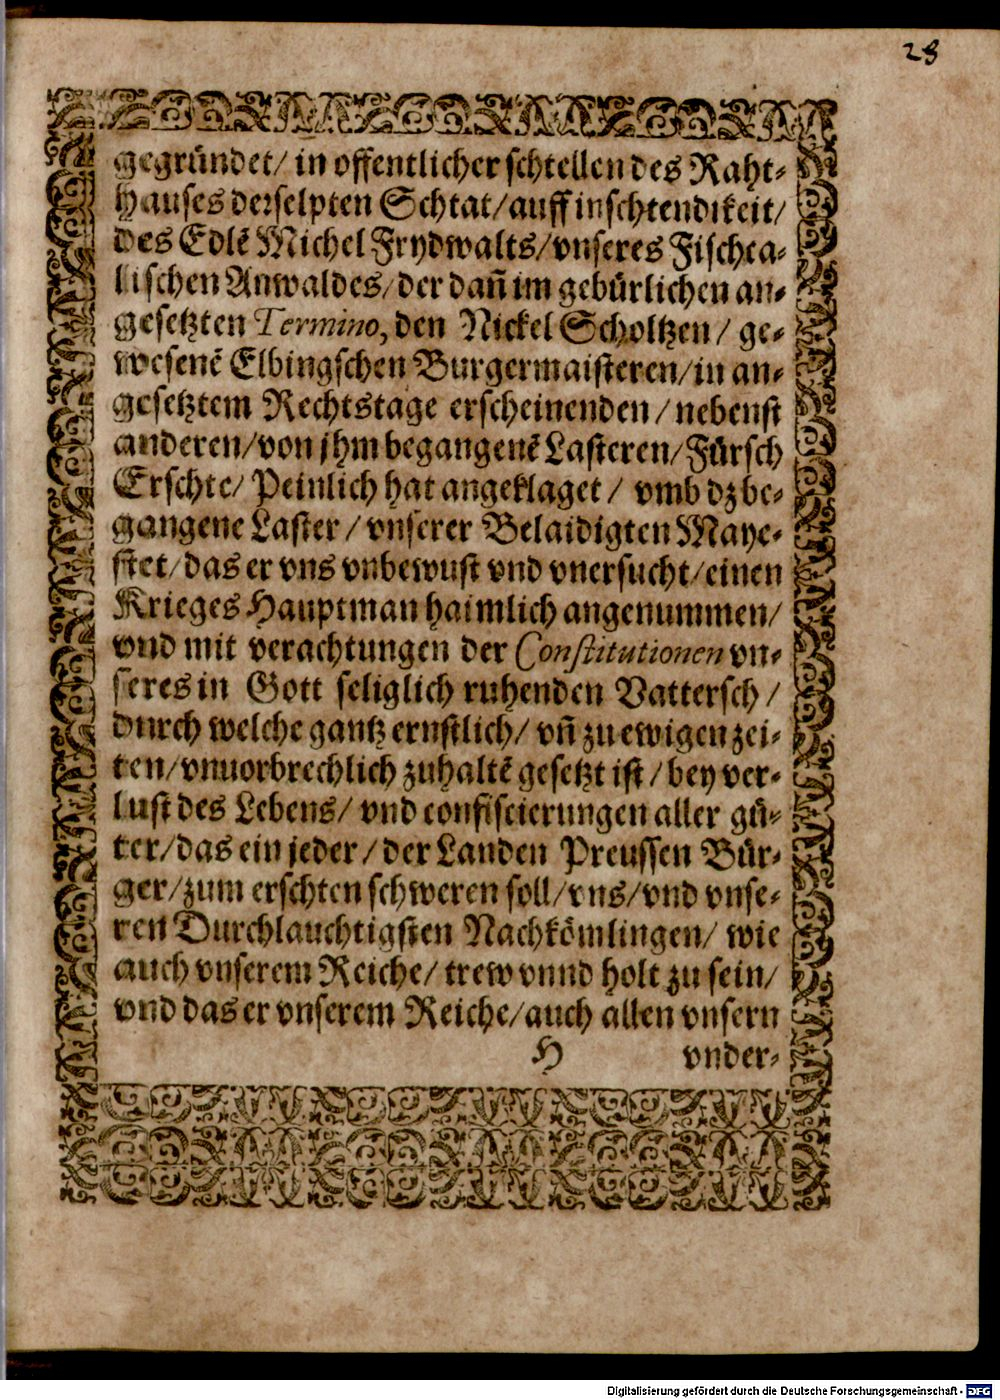 28
gegründet/ in offentlicher schtellen des Raht⸗
hauses derselpten Schtat/ auff inschtendikeit/
des Edlẽ Michel Frydwalts/ vnseres Fischca⸗
lischen Anwaldes/ der dañ im gebürlichen an⸗
gesetzten Termino, den Nickel Scholtzen/ ge⸗
wesenẽ Elbingschen Burgermaisteren/ in an⸗
gesetztem Rechtstage erscheinenden/ nebenst
anderen/ von jhm begangenẽ Lasteren/ Fürsch
Erschte/ Peinlich hat angeklaget/ vmb dz be⸗
gangene Laster/ vnserer Belaidigten Maye⸗
stet/ das er vns vnbewust vnd vnersucht/ einen
Krieges Hauptman haimlich angenummen/
vnd mit verachtungen der Constitutionen vn⸗
seres in Gott seliglich ruhenden Vattersch/
durch welche gantz ernstlich/ vñ zu ewigen zei⸗
ten/ vnuorbrechlich zuhaltẽ gesetzt ist/ bey ver⸗
lust des Lebens/ vnd confiscierungen aller gü⸗
ter/ das ein jeder/ der Landen Preussen Bür⸗
ger/ zum erschten schweren soll/ vns/ vnd vnse⸗
ren Durchlauchtigsten Nachkömlingen/ wie
auch vnserem Reiche/ trew vnnd holt zu sein/
vnd das er vnserem Reiche/ auch allen vnsern
H vnder⸗
Digitalisierung gefördert durch die Deutsche Forschungsgemeinschaft - DFG